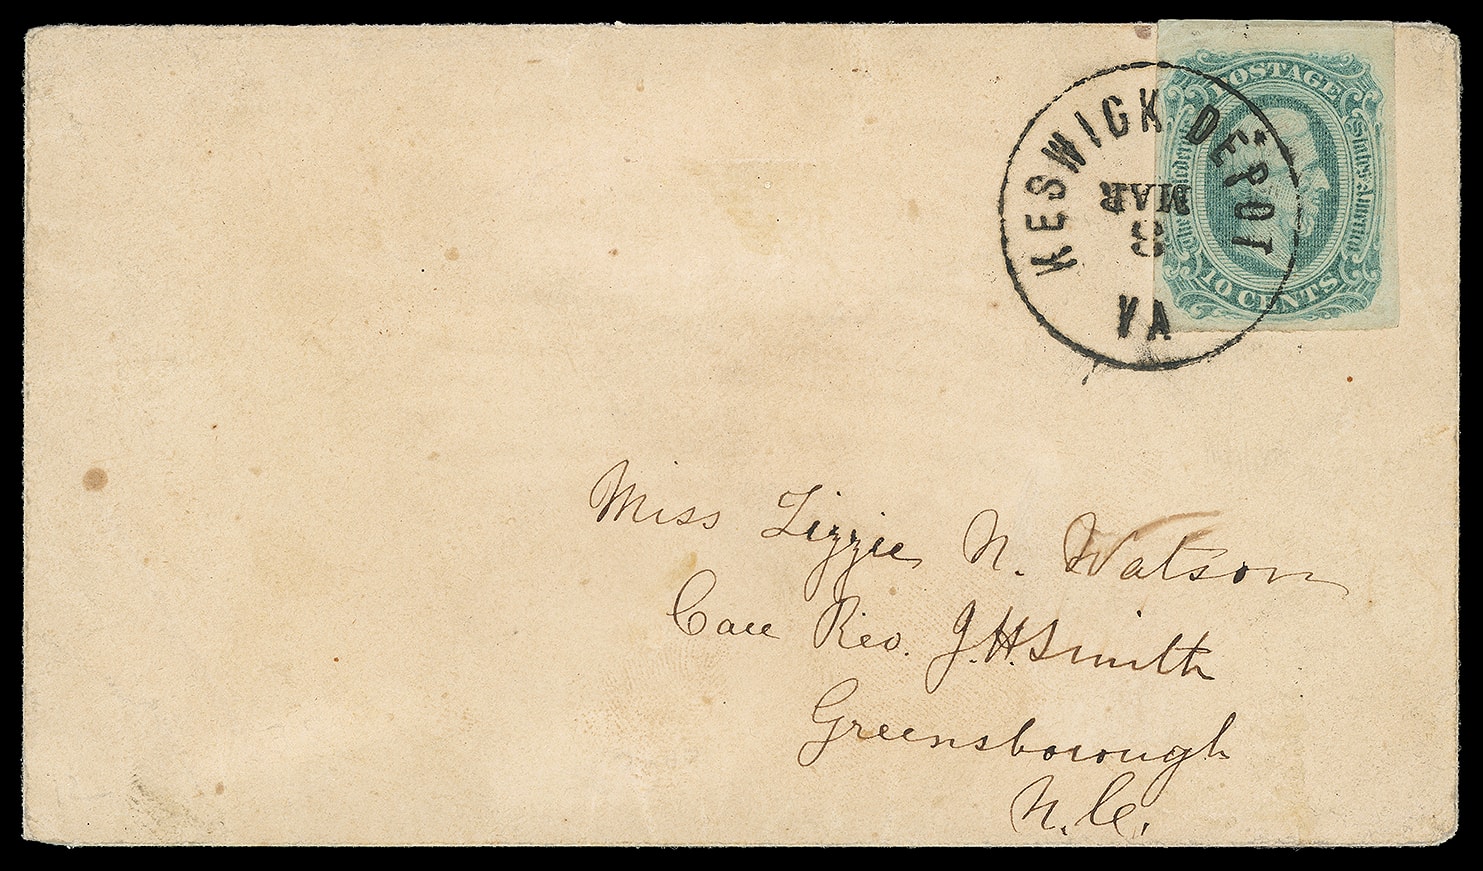 POSTAGE
The Confederate States of America
10 CENTS
KESWICK DEPOT
MAR
3
VA
Miss Lizzie N. Watson
Care Rev. J. H. Smith
Greensborough
N. C.